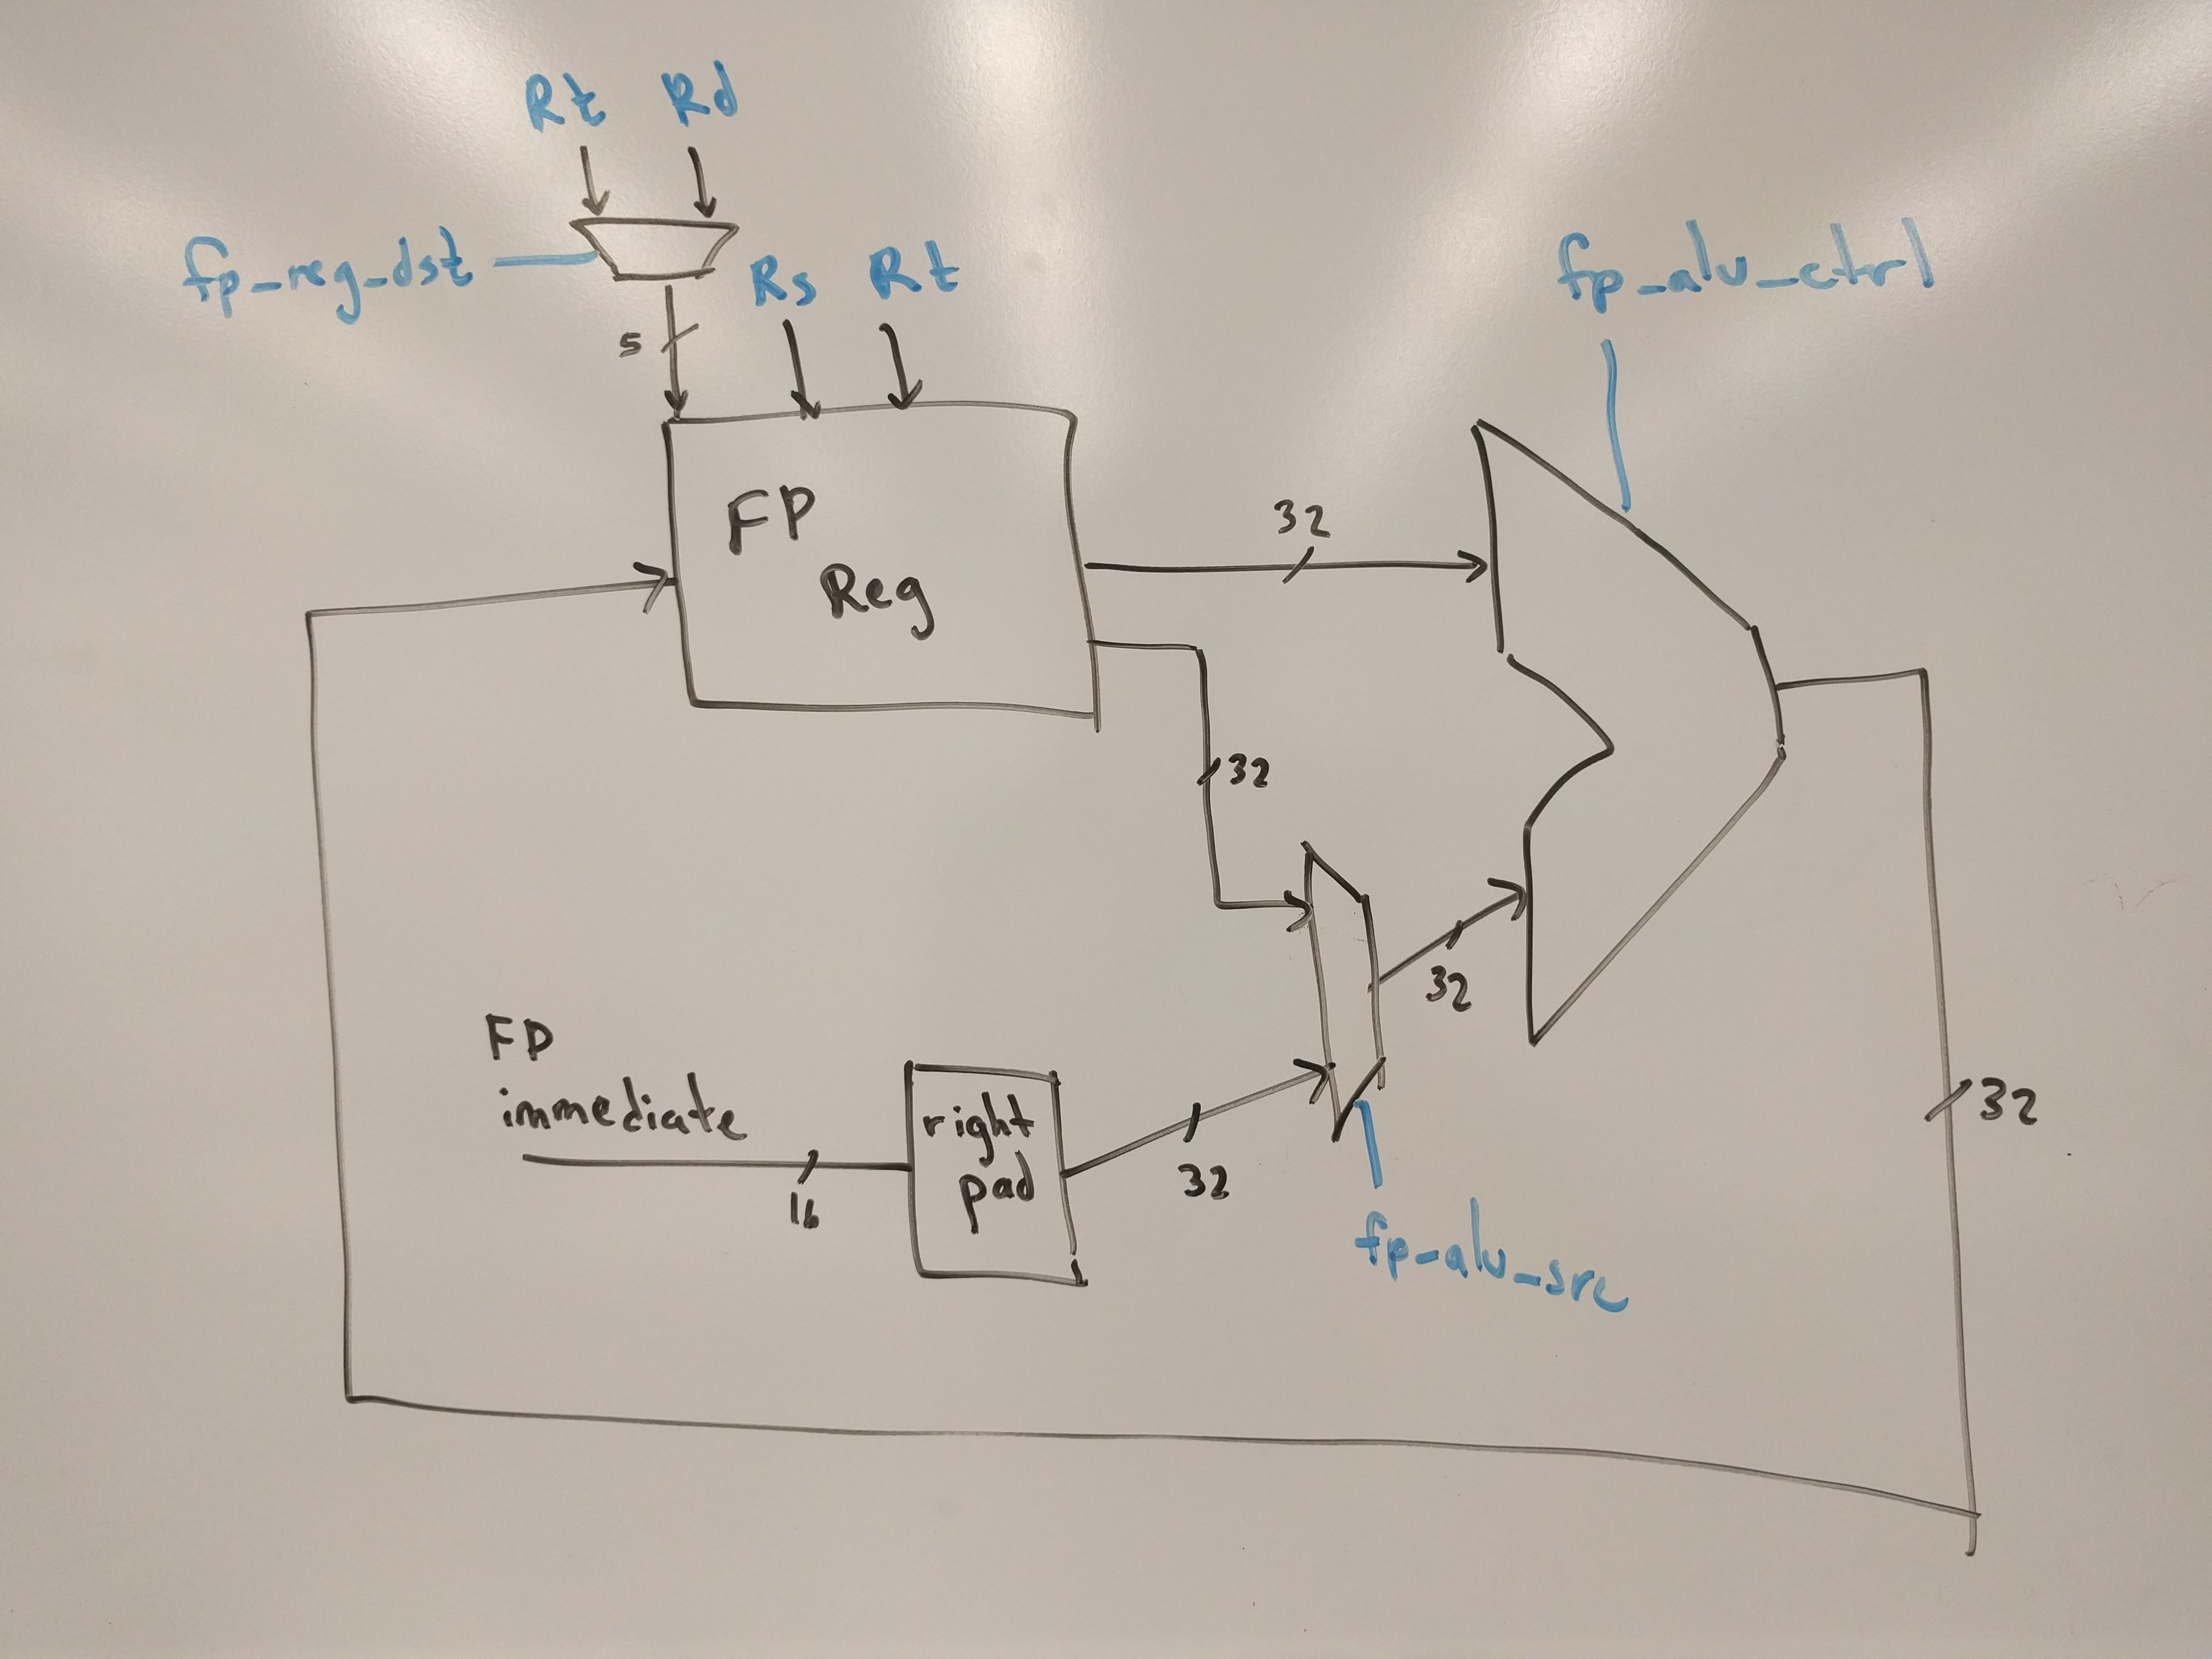 Rt Rd
fp_reg_dst
Rs Rt
fp_alu_ctrl
5
FP
Reg
32
32
32
FP
immediate
16
right
pad
32
fp_alu_src
32